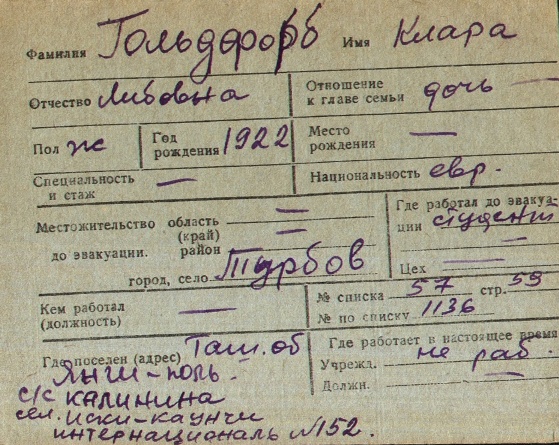 Фамилия Гольдфорб Имя Клара
Отчество Либовна Отношение к главе семьи дочь —
Пол ж Год рождения 1922 Место рождения —
Специальность и стаж — Национальность евр.
Местожительство область —
(край) —
до эвакуации. район
город, село Турбов
Где работал до эвакуа-
ции студент
—
Цех —
Кем работал
(должность) —
№ списка 57 стр. 59
№ по списку 1136
Где поселен (адрес) Таш. об
Янги-поль.
с/с КАЛИНИНА
сел. иски-каунчи
интернациональ №152.
Где работает в настоящее время
Учрежд. не раб.
Должн. —